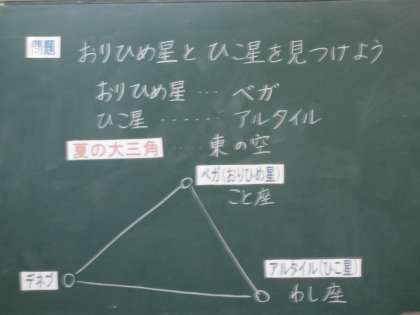 問題 おりひめ星とひこ星を見つけよう
おりひめ星 … ベガ
ひこ星 …… アルタイル
夏の大三角 …… 東の空
ベガ(おりひめ星)
こと座
デネブ
アルタイル(ひこ星)
わし座